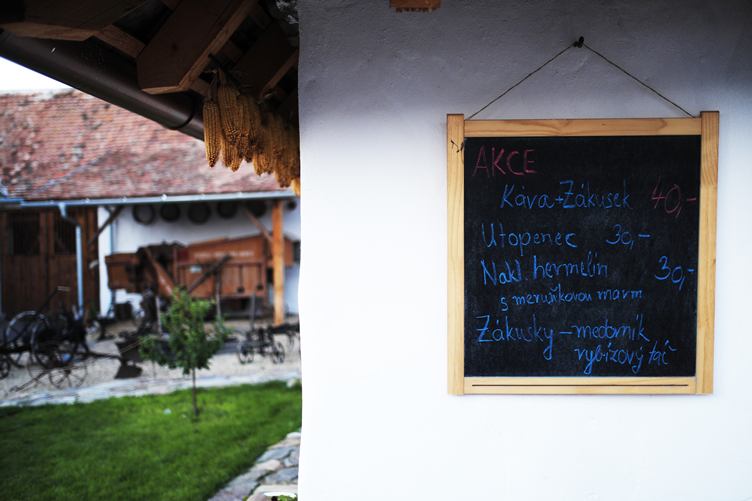 AKCE
Káva+Zákusek 40,-
Utopenec 30,-
Nakl. hermelín 30,-
s meruňkovou marm
Zákusky - medovník
rybízový táč